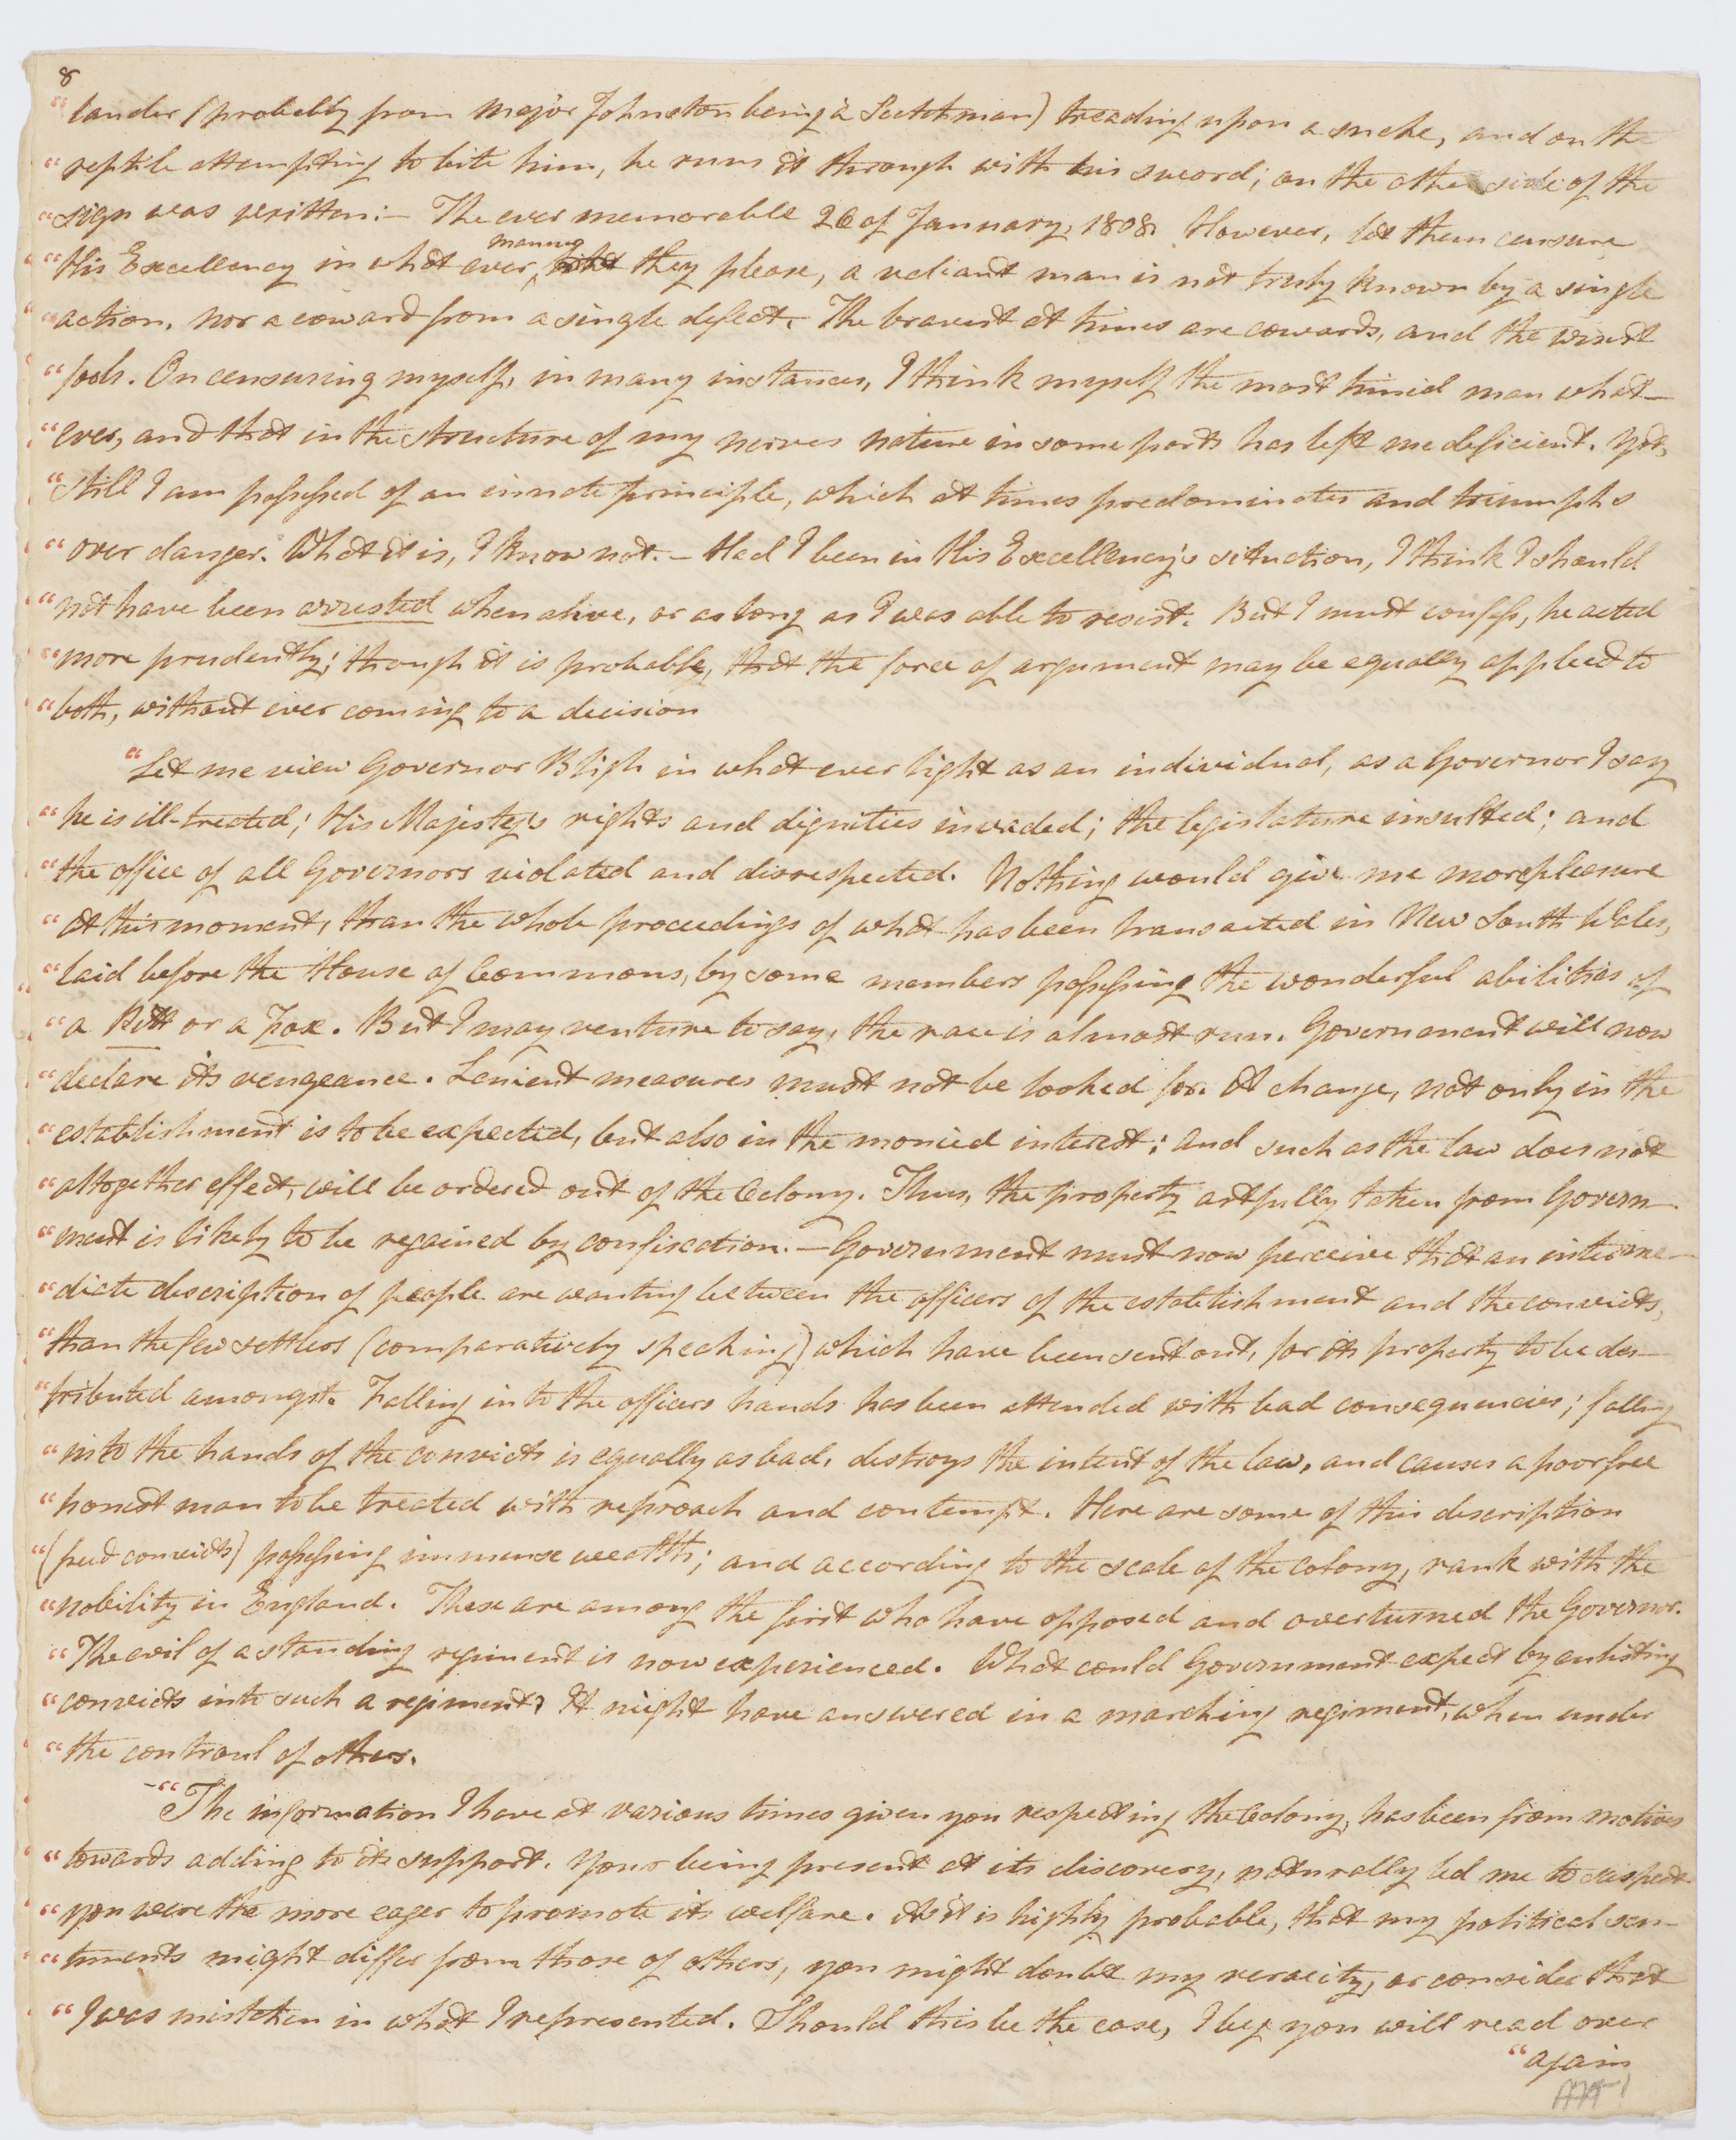 8
"lander (probably from Major Johnston being a Scotchman) treading upon a snake, and on the
"reptile attempting to bite him, he runs it through with his sword; on the other side of the
"sign was written:— The ever memorable 26 of January, 1808. However, let them censure
"His Excellency in what ever manner they please, a valiant man is not truly known by a single
"action, nor a coward from a single defect. The bravest at times are cowards, and the wisest
"fools. On censuring myself, in many instances, I think myself the most timid man what-
"ever, and that in the structure of my nerves nature in some parts has left me deficient. Yet,
"still I am possessed of an innate principle, which at times predominates and triumphs
"over danger. What it is, I know not.— Had I been in His Excellency's situation, I think I should
"not have been arrested when alive, or as long as I was able to resist. But I must confess, he acted
"more prudently; though it is probable, that the force of argument may be equally applied to
"both, without ever coming to a decision
"Let me view Governor Bligh in what ever light as an individual, as a Governor I say
"he is ill-treated; His Majesty's rights and dignities invaded; the legislature insulted; and
"the office of all Governors violated and disrespected. Nothing would give me more pleasure
"at this moment, than the whole proceedings of what has been transacted in New South Wales,
"laid before the House of Commons, by some members possessing the wonderful abilities of
"a Pitt or a Fox. But I may venture to say, the race is almost run. Government will now
"declare its vengeance. Lenient measures must not be looked for. A change, not only in the
"establishment is to be expected, but also in the monied interest; and such as the law does not
"altogether effect, will be ordered out of the Colony. Thus, the property artfully taken from Govern-
"ment is likely to be regained by confiscation.— Government must now perceive that an interme-
"diate description of people are wanting between the officers of the establishment and the convicts,
"than the few settlers (comparatively speaking) which have been sent out, for its property to be des-
"tributed amongst. Falling into the officers hands has been attended with bad consequencies; falling
"into the hands of the convicts is equally as bad, destroys the intent of the law, and causes a poor free
"honest man to be treated with reproach and contempt. Here are some of this description
"(freed convicts) possessing immense wealth; and according to the scale of the colony, rank with the
"nobility in England. These are among the first who have opposed and overturned the Governor.
"The evil of a standing regiment is now experienced. What could Government expect by enlisting
"convicts into such a regiment? It might have answered in a marching regiment, when under
"the controul of others.
-"The information I have at various times given you respecting the Colony, has been from motives
"towards adding to its support. Your being present at its discovery, naturally led me to suspect
"you were the more eager to promote its welfare. As it is highly probable, that my political sen-
"timents might differ from those of others, you might doubt my veracity, or consider that
"I was mistaken in what I represented. Should this be the case, I beg you will read over
"again